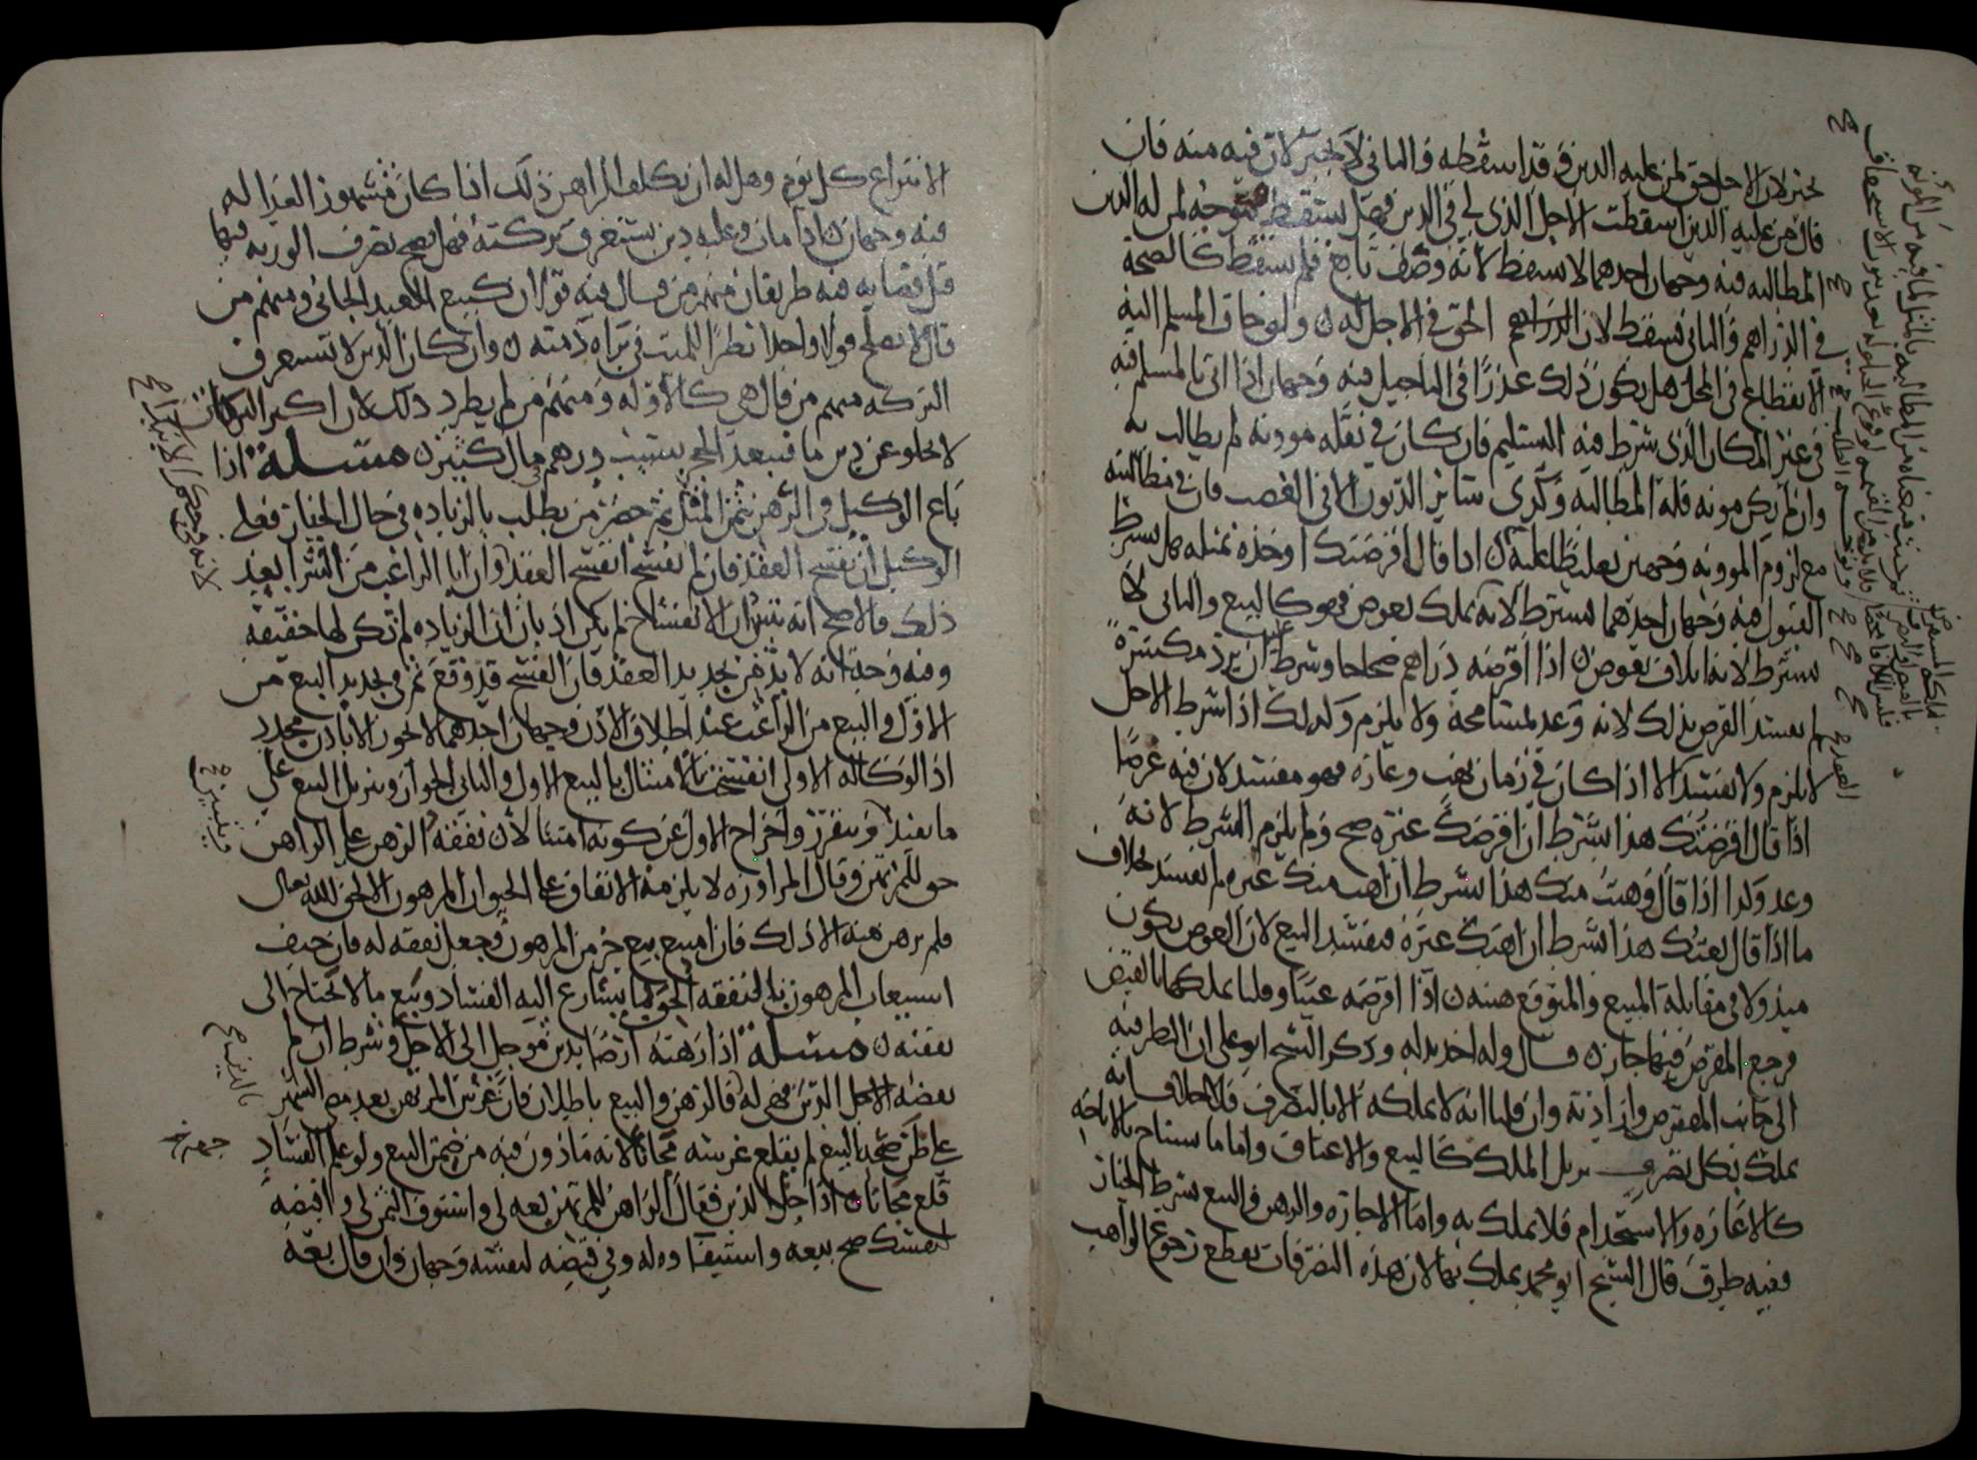 يجبر لان الاجل حق لمن عليه الدين وقد اسقطه والثاني لا يجبر لان فيه منه فان
قال من عليه الدين اسقطت الاجل الذي لي في الدين فهل يسقط ويتوجه لمن له الدين
المطالبه فيه وجهان احدهما لا يسقط لانه وصف تابع فلم يسقط كالصحة
في الدراهم والثاني يسقط لان الحق في الاجل له ن ولو خاف المسلم اليه
الانقطاع في المحل هل يكون ذلك عذرا في التاجيل فيه وجهان اذا اتى بالمسلم فيه
في غير المكان الذي شرط فيه التسليم فان كان في نقله موونه لم يطالب به
وان لم يكن مونه فله المطالبه وكذى سائر الديون الا في الغصب فان في مطالبته
مع لزوم الموونه وجهين تغليظا عليه ن اذا قال اقرضتك او خذه بمثله هل يشرط
القبول فيه وجهان احدهما يشترط لانه تملك بعوض فهو كالبيع والثاني لا
يشترط لانه اتلاف بعوض ن اذا اقرضه دراهم صحاحا وشرط ان يرد مكسرة
لم يفسد القرض بذلك لانه وعد لمسامحة ولا يلزم وكذلك اذا شرط الاجل
لا يلزم ولا يفسد الا اذا كان في زمان نهب وغاره فهو مفسد لان فيه غرضا
اذا قال اقرضتك هذا بشرط ان اقرضك غيره صح ولم يلزم الشرط لانه
وعد وكذا اذا قال وهبت منك هذا بشرط ان اهب منك غيره لم يفسد بخلاف
ما اذا قال بعتك هذا بشرط ان اهبك غيره فيفسد البيع لان العوض يكون
مبذولا في مقابلة المبيع والمتوقع هبته ن اذا اقرضه عينا وقلنا يملكها بالقبض
فرجع المقرض فيها جاز ن قال وله اخذ بدله وذكر الشيخ ابو علي ان النظر فيه
الى جانب المقترض وان قلنا انه لا يملكه الا بالتصرف فلا خلاف انه
يملك بكل تصرف يزيل الملك كالبيع والاعتاق واما ما يستباح بالاباحة
كالاعاره والاستخدام فلا يملك به واما الاجازه والرهن والبيع بشرط الخيار
ففيه طرق قال الشيخ ابو محمد يملك بها لان هذه التصرفات تقطع رجوع الواهب
الانتزاع كل يوم وهل له ان يكلف الراهن ذلك اذا كان مشهور العدالة
فيه وجهان ن اذا مات وعليه دين يستغرق تركته فهل يصح تصرف الورثه فيها
قبل قضايه فيه طريقان منهم من قال فيه قولان كبيع العبد الجاني ومنهم من
قال لا يصح قولا واحدا نظرا للميت في براه ذمته ن وان كان الدين لا يستغرق
التركه منهم من قال هي كالاوله ومنهم من لم يطرد ذلك لان اكثر التركات
لا تخلو عن دين ما فيبعد الحجر بسبب درهم في مال كثير ن مسله اذا
باع الوكيل في الرهن بثمن المثل ثم حضر من يطلب بالزياده في حال الخيار فعلى
الوكيل ان يفسخ العقد فان لم يفسخ انفسخ العقد وان ابا الراغب من الشرا بعد
ذلك فالاصح انه تبين ان الانفساخ لم يكن اذ بان ان الزياده لم تكن لها حقيقة
وفيه وجه انه لا بد من تجديد العقد فان الفسخ قد وقع ثم في تجديد البيع من
الاول والبيع من الراغب عند اطلاق الاذن وجهان احدهما لا يجوز الا باذن مجدد
اذ الوكاله الاولى انفسخت بالامتثال بالبيع الاول والثاني الجواز وينزل البيع على
ما يفيد ويتقرر واخراج الاول عن كونه امتثالا ن نفقة الرهن على الراهن
حق للمرتهن وقال المراوزه لا يلزمه الانفاق على الحيوان المرهون الا لحق الله تعالى
فلم يرهن منه الا ذلك فان امتنع بيع جز من المرهون وجعل نفقه له فان خيف
استيعاب المرهون بالنفقه الحق بما يتسارع اليه الفساد وبيع ما لا يحتاج الى
نفقته ن مسله اذا رهنه ارضا بدين موجل الى الاجل وشرط ان لم
يقضه الاجل الدين فهي له فالرهن والبيع باطلان فان غرس المرتهن بعد مضي الشهر
على ظن صحة البيع لم يقلع غرسه مجانا لانه ماذون فيه من ضمن البيع ولو علم الفساد
قلع مجانا ن اذا حل الدين فقال الراهن للمرتهن بعه لي واستوف الثمن لي واقبضه
لنفسك صح بيعه واستيفاوه له وفي قبضه لنفسه وجهان وان قال بعه